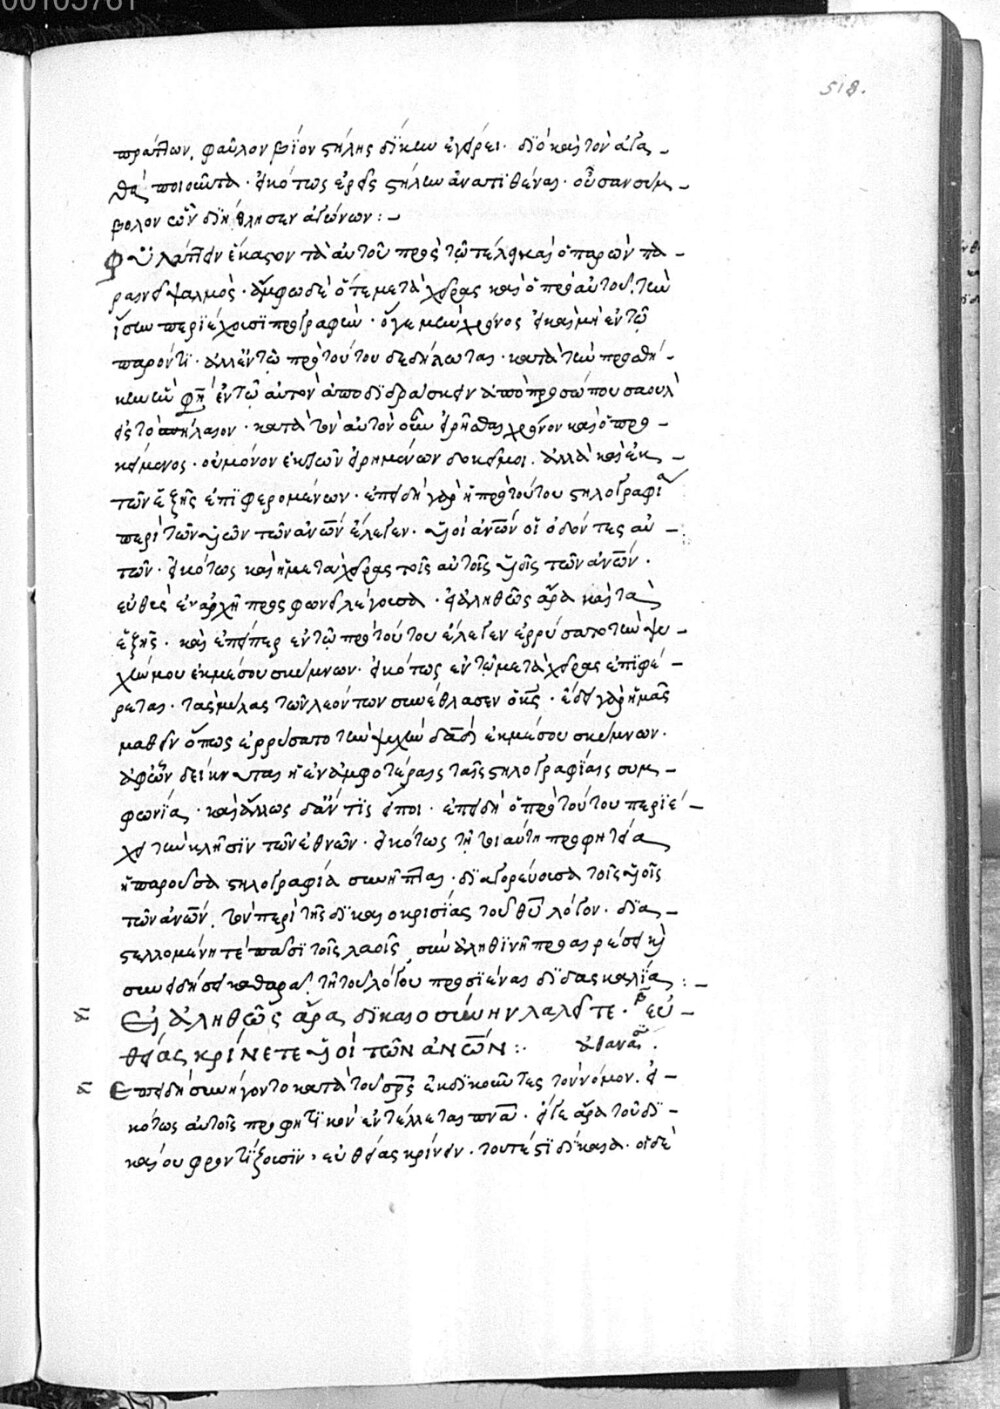 00105761
518.
πράττων, φαῦλον βίον στήλης δίκην ἐγείρει· διὸ καὶ τὸν ἀγα-
θὰ ποιοῦντα· εἰκότως ἐρεῖς στήλην ἀνατιθέναι· οὖσαν σύμ-
βολον ὧν διήθλησεν ἀγώνων :-
Φυλάττειν ἕκαστον τὰ αὐτοῦ πρὸς τῷ τέλει καὶ ὁ παρὼν πα-
ραινεῖ ψαλμός· ἄμφω δὲ ὅ τε μετὰ χεῖρας καὶ ὁ πρὸ αὐτοῦ, τὴν
ἴσην περιέχουσι προγραφήν· ὅ γε μὴν χρόνος εἰ καὶ μὴ ἐν τῷ
παρόντι· ἀλλ' ἐν τῷ πρὸ τούτου δεδήλωται· κατὰ τὴν προσθή-
κην φησὶ ἐν τῷ αὐτὸν ἀποδιδράσκειν ἀπὸ προσώπου σαοὺλ
εἰς τὸ σπήλαιον· κατὰ τὸν αὐτὸν οὖν εἰρῆσθαι χρόνον καὶ ὁ προ-
κείμενος· οὐ μόνον ἐκ τῶν εἰρημένων δοκεῖ μοι. ἀλλὰ καὶ ἐκ
τῶν ἑξῆς ἐπιφερομένων· ἐπειδὴ γὰρ ἡ πρὸ τούτου στηλογραφία
περὶ τῶν υἱῶν τῶν ἀνῶν ἔλεγεν· υἱοὶ ἀνῶν οἱ ὀδόντες αὐ-
τῶν· εἰκότως καὶ ἡ μετὰ χεῖρας τοῖς αὐτοῖς υἱοῖς τῶν ἀνῶν·
εὐθὺς ἐν ἀρχῇ προσφωνεῖ λέγουσα· εἰ ἀληθῶς ἄρα καὶ τὰ
ἑξῆς· καὶ ἐπείπερ ἐν τῷ πρὸ τούτου ἔλεγεν ἐρρύσατο τὴν ψυ-
χήν μου ἐκ μέσου σκύμνων· εἰκότως ἐν τῷ μετὰ χεῖρας ἐπιφέ-
ρεται· τὰς μύλας τῶν λεόντων συνέθλασεν ὁ κς· ἔδει γὰρ ἡμᾶς
μαθεῖν ὅπως ἐρρύσατο τὴν ψυχὴν δαδ ἐκ μέσου σκύμνων·
ἀφ' ὧν δείκνυται ἡ ἐν ἀμφοτέραις ταῖς στηλογραφίαις συμ-
φωνία· καὶ ἄλλως δ' ἄν τις εἴποι· ἐπειδὴ ὁ πρὸ τούτου περιέ-
χει τὴν κλῆσιν τῶν ἐθνῶν· εἰκότως τῇ τοιαύτῃ προφητείᾳ
ἡ παροῦσα στηλογραφία συνῆπται· διαγορεύουσα τοῖς υἱοῖς
τῶν ἀνῶν, τὸν περὶ τῆς δικαιοκρισίας τοῦ θυ λόγον· δια-
στελλομένη τε πᾶσι τοῖς λαοῖς, σὺν ἀληθινῇ προαιρέσει καὶ
συνειδήσει καθαρᾷ, τῇ τοῦ λόγου προσιέναι διδασκαλίᾳ :-
Εἰ ἀληθῶς ἄρα δικαιοσύνην λαλεῖτε· εὐ-
θείας κρίνετε υἱοὶ τῶν ἀνῶν :. ἀθανασ.
Ἐπειδὴ συνήγοντο κατὰ τοῦ σρς ἐκδικοῦντες τὸν νόμον. εἰ-
κότως αὐτοῖς προφητικὸν ἐντέλλεται πνα· εἴγε ἄρα τοῦ δι-
καίου φροντίζουσιν· εὐθείας κρίνειν· τουτέστι δίκαια· οἱ δὲ